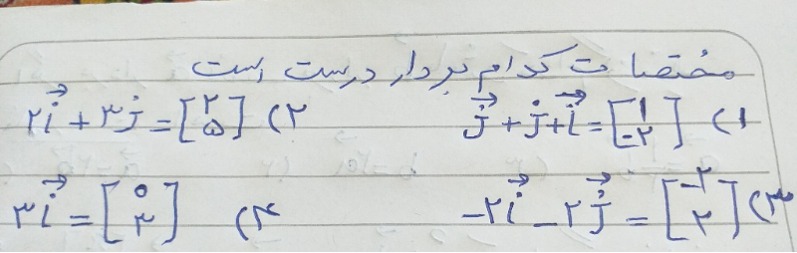 مختصات کدام بردار درست است
۱) j⃗ + j⃗ + i⃗ = [۱ -۲] ۲) ۲i⃗ + ۳j⃗ = [۲ ۵]
۳) -۲i⃗ - ۲j⃗ = [-۲ ۲] ۴) ۳i⃗ = [۰ ۳]